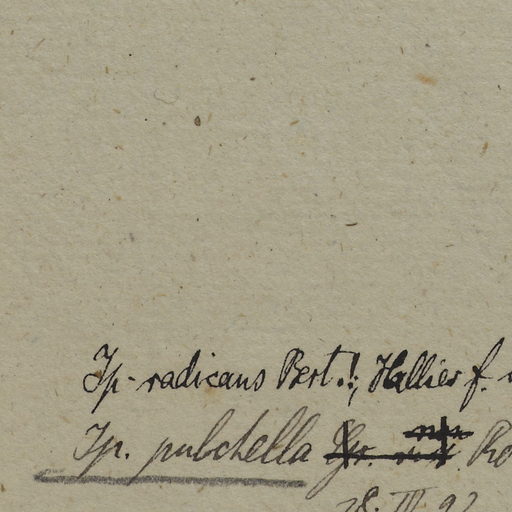 Ip. radicans Bert.!; Hallier f.
Ip. pulchella
28. III. 92